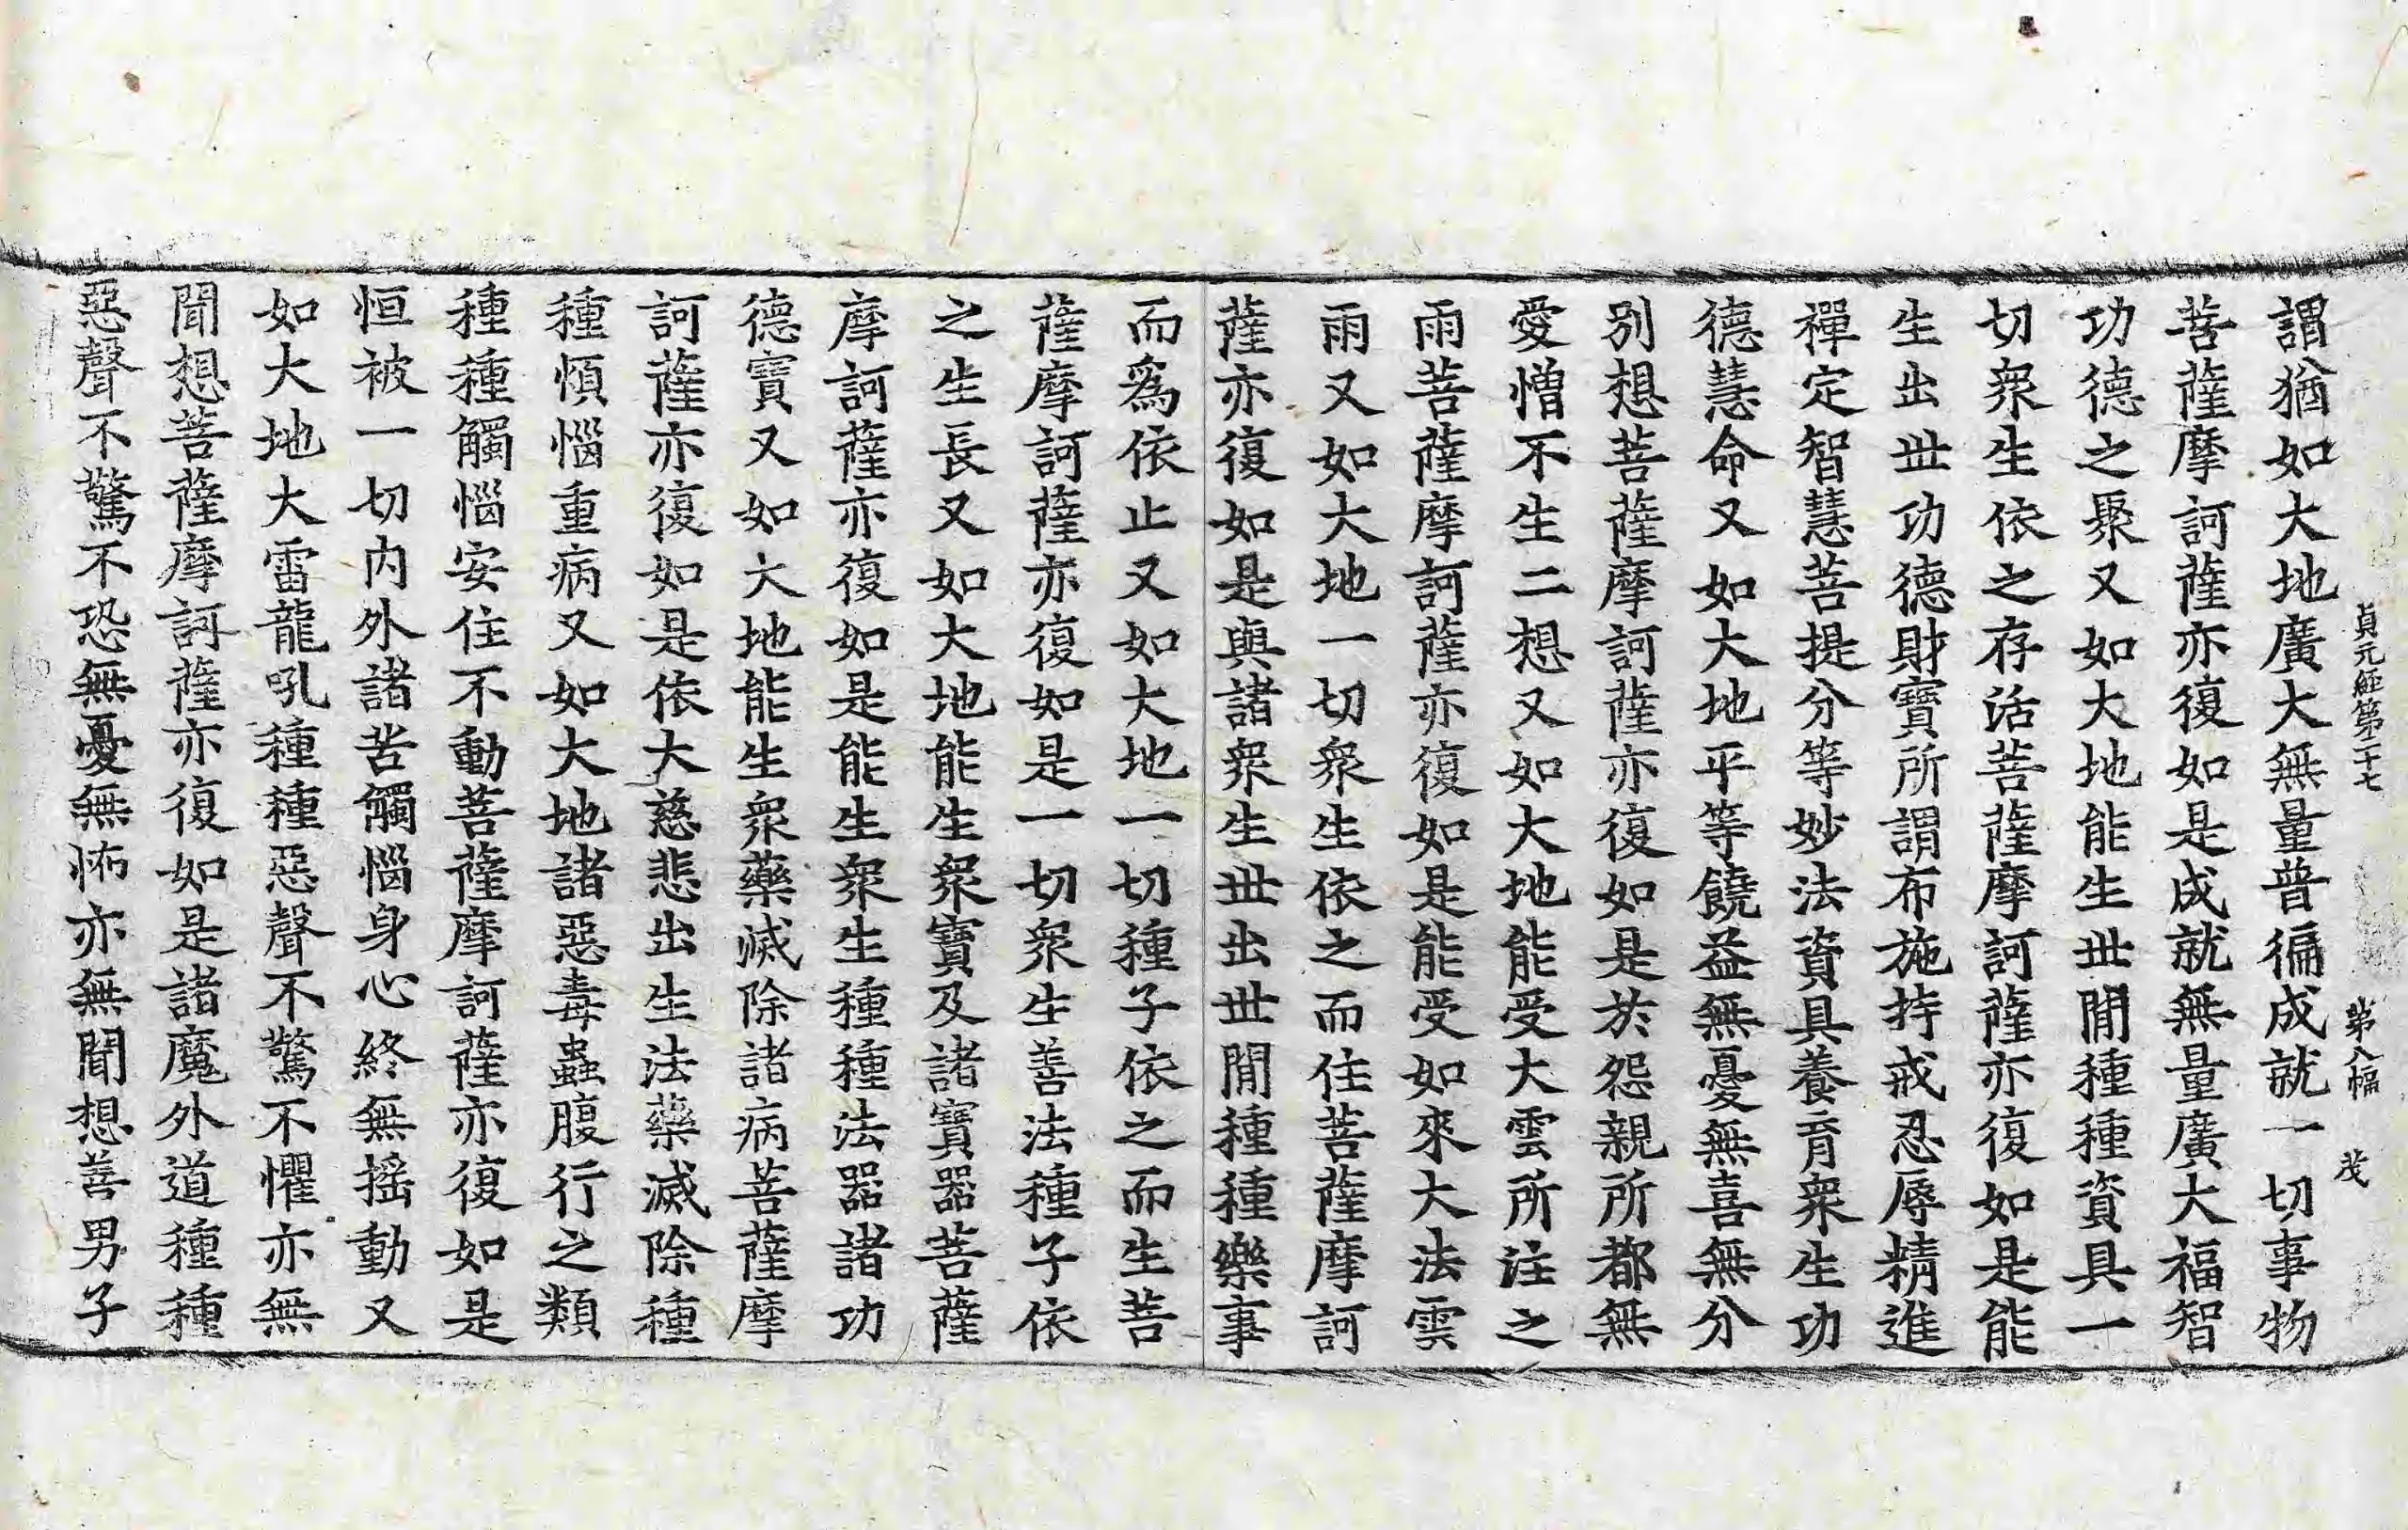 貞元經第二十七 第八幅 茂
謂猶如大地廣大無量普徧成就一切事物
菩薩摩訶薩亦復如是成就無量廣大福智
功德之聚又如大地能生世間種種資具一
切衆生依之存活菩薩摩訶薩亦復如是能
生出世功德財寶所謂布施持戒忍辱精進
禪定智慧菩提分等妙法資具養育衆生功
德慧命又如大地平等饒益無憂無喜無分
別想菩薩摩訶薩亦復如是於怨親所都無
愛憎不生二想又如大地能受大雲所注之
雨菩薩摩訶薩亦復如是能受如來大法雲
雨又如大地一切衆生依之而住菩薩摩訶
薩亦復如是與諸衆生世出世間種種樂事
而爲依止又如大地一切種子依之而生菩
薩摩訶薩亦復如是一切衆生善法種子依
之生長又如大地能生衆寶及諸寶器菩薩
摩訶薩亦復如是能生衆生種種法器諸功
德寶又如大地能生衆藥滅除諸病菩薩摩
訶薩亦復如是依大慈悲出生法藥滅除種
種煩惱重病又如大地諸惡毒蟲腹行之類
種種觸惱安住不動菩薩摩訶薩亦復如是
恒被一切內外諸苦觸惱身心終無搖動又
如大地大雷龍吼種種惡聲不驚不懼亦無
聞想菩薩摩訶薩亦復如是諸魔外道種種
惡聲不驚不恐無憂無怖亦無聞想善男子